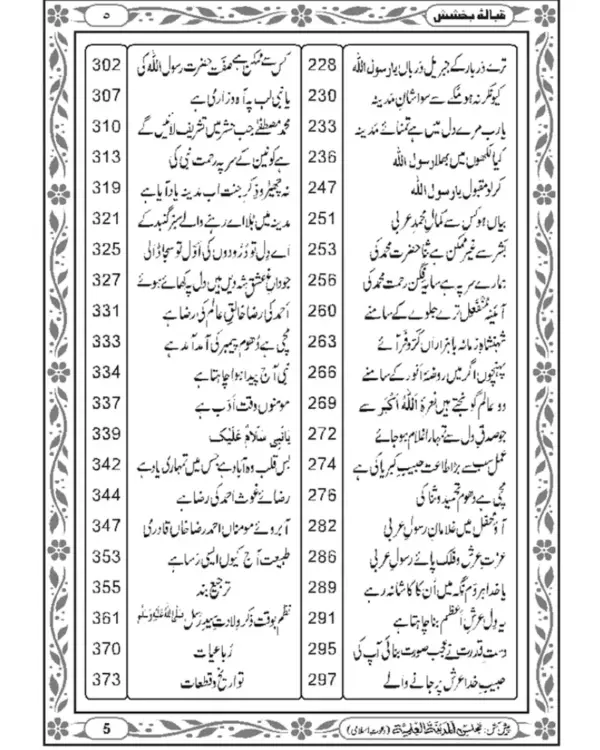 قبالۂ بخشش ۵
ترے دَربار کے جبریل دَرباں یارسول اللّٰہ 228
کیونکر نہ ہو مکّے سے سوا شانِ مدینہ 230
یارب مرے دل میں ہے تمنائے مدینہ 233
کیا لکھوں میں بھلا رسول اللّٰہ 236
کرلو مقبول یارسول اللّٰہ 247
بیاں ہو کس سے کمالِ محمد عربی 251
بشر سے غیر ممکن ہے ثنا حضرت محمد کی 253
ہمارے سر پہ ہے سایہ فگن رحمت محمد کی 256
آئینہ مُنْفَعِل ترے جلوے کے سامنے 260
شہنشاہِ زمانہ باہزاراں کرّوفر آئے 263
پہنچوں اگر میں روضۂ انور کے سامنے 266
دو عالم گونجتے ہیں نعرۂ اَللّٰہُ اَکْبَر سے 269
جو صدقِ دل سے تمہارا غلام ہوجائے 272
عمل سب سے بڑا طاعت حبیبِ کبریا کی ہے 274
مچی ہے دھوم تحمید و ثنا کی 276
آؤ محفل میں غلامانِ رسولِ عربی 282
عزتِ عرش و فلک پائے رسولِ عربی 286
یاخدا ہر دَم نگہ میں اُن کا کاشانہ رہے 289
یہ دل عرشِ اَعظم بنا چاہتا ہے 291
دستِ قدرت نے عجب صورت بنائی آپ کی 295
حبیبِ خدا عرش پر جانے والے 297
کس سے ممکن ہے صفت حضرت رسول اللّٰہ کی 302
یانبی لب پہ آہ و زاری ہے 307
محمد مصطفٰے جب حشر میں تشریف لائیں گے 310
ہے کونین کے سر پہ رحمت نبی کی 313
نہ چھیڑو ذکرِ جنت اب مدینہ یاد آیا ہے 319
مدینہ میں بلا اے رہنے والے سبز گنبد کے 321
اے دِل تو دُرودوں کی اَوّل تو سجا ڈالی 325
جو داغِ عشقِ شہ دیں ہیں دل پہ کھائے ہوئے 327
اَحمد کی رضا خالقِ عالم کی رضا ہے 331
مچی ہے دُھوم پیمبر کی آمد آمد ہے 333
نبی آج پیدا ہوا چاہتا ہے 334
مومنوں وقت اَدَب ہے 337
یَانَبِی سَلَامٌ عَلَیْکَ 339
بس قلب وہ آباد ہے جس میں تمہاری یاد ہے 342
رضائے غوث احمد کی رضا ہے 344
آبروئے مومناں احمد رضا خاں قادری 347
طبیعت آج کیوں ایسی رَسا ہے 353
ترجیع بند 355
نظم بوقت ذکرِ ولادتِ سیدِ رُسل صلی اللہ علیہ وسلم 361
رُباعیات 370
تواریخ و قطعات 373
پیش کش: مجلس المدینۃ العلمیۃ (دعوت اسلامی) 5